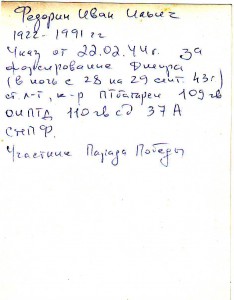 Федорин Иван Ильич
1922-1991 гг
Указ от 22.02.44г. за
форсирование Днепра
(в ночь с 28 на 29 сент. 43г.)
ст. л-т, к-р ПТбатареи 109 гв
ОИПТД 110 гв сд 37 А
СтПФ.
Участник Парада Победы